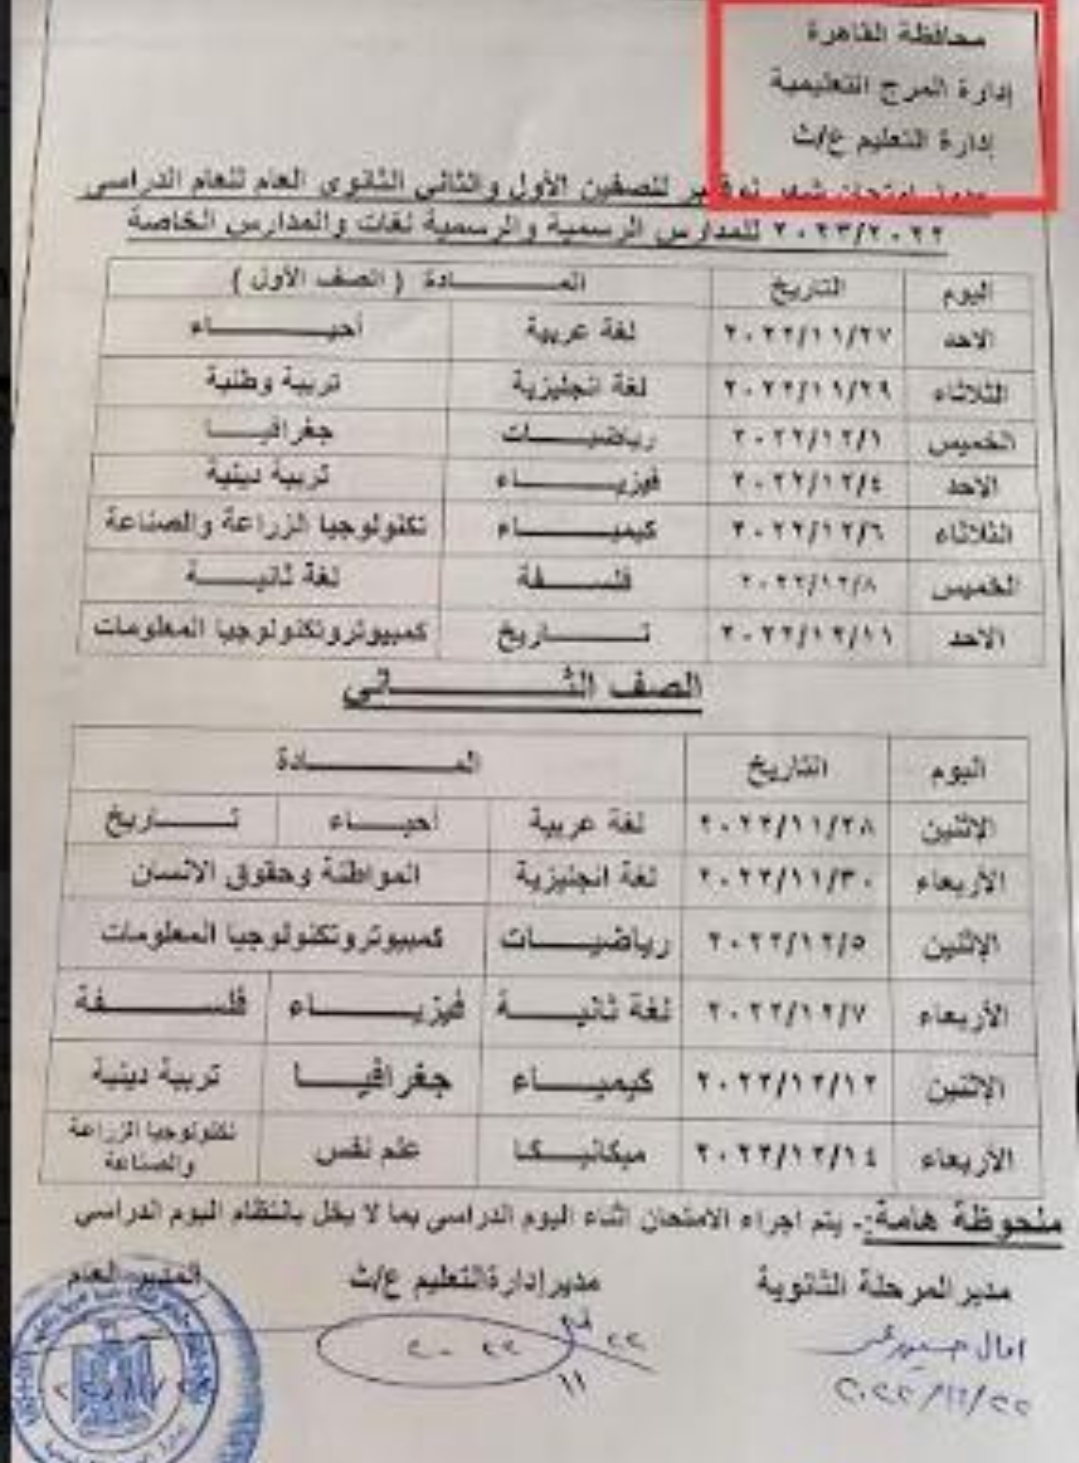 محافظة القاهرة
إدارة المرج التعليمية
إدارة التعليم ع/ث
امتحان شهر نوفمبر للصفين الأول والثاني الثانوي العام للعام الدراسي
٢٠٢٣/٢٠٢٢ للمدارس الرسمية والرسمية لغات والمدارس الخاصة
اليوم التاريخ المـــادة ( الصف الأول )
الاحد ٢٠٢٢/١١/٢٧ لغة عربية أحيـــاء
الثلاثاء ٢٠٢٢/١١/٢٩ لغة انجليزية تربية وطنية
الخميس ٢٠٢٢/١٢/١ رياضيـــات جغرافيـــا
الاحد ٢٠٢٢/١٢/٤ فيزيـــاء تربية دينية
الثلاثاء ٢٠٢٢/١٢/٦ كيميـــاء تكنولوجيا الزراعة والصناعة
الخميس ٢٠٢٢/١٢/٨ فلســـفة لغة ثانيـــة
الاحد ٢٠٢٢/١٢/١١ تـــاريخ كمبيوتروتكنولوجيا المعلومات
الصف الثـــاني
اليوم التاريخ المـــادة
الإثنين ٢٠٢٢/١١/٢٨ لغة عربية أحيـــاء تـــاريخ
الأربعاء ٢٠٢٢/١١/٣٠ لغة انجليزية المواطنة وحقوق الانسان
الإثنين ٢٠٢٢/١٢/٥ رياضيـــات كمبيوتروتكنولوجيا المعلومات
الأربعاء ٢٠٢٢/١٢/٧ لغة ثانيـــة فيزيـــاء فلســـفة
الإثنين ٢٠٢٢/١٢/١٢ كيميـــاء جغرافيـــا تربية دينية
الأربعاء ٢٠٢٢/١٢/١٤ ميكانيـــكا علم نفس تكنولوجيا الزراعة والصناعة
ملحوظة هامة:- يتم اجراء الامتحان اثناء اليوم الدراسي بما لا يخل بانتظام اليوم الدراسي
مدير المرحلة الثانوية مدير إدارة التعليم ع/ث المدير العام